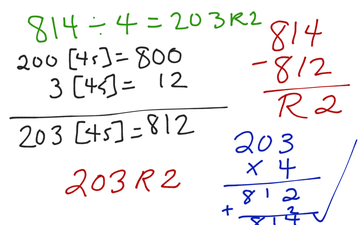 814 ÷ 4 = 203 R 2
200 [4s] = 800
3 [4s] = 12
203 [4s] = 812
203 R 2
814
- 812
R 2
203
x 4
812
+ 2
814